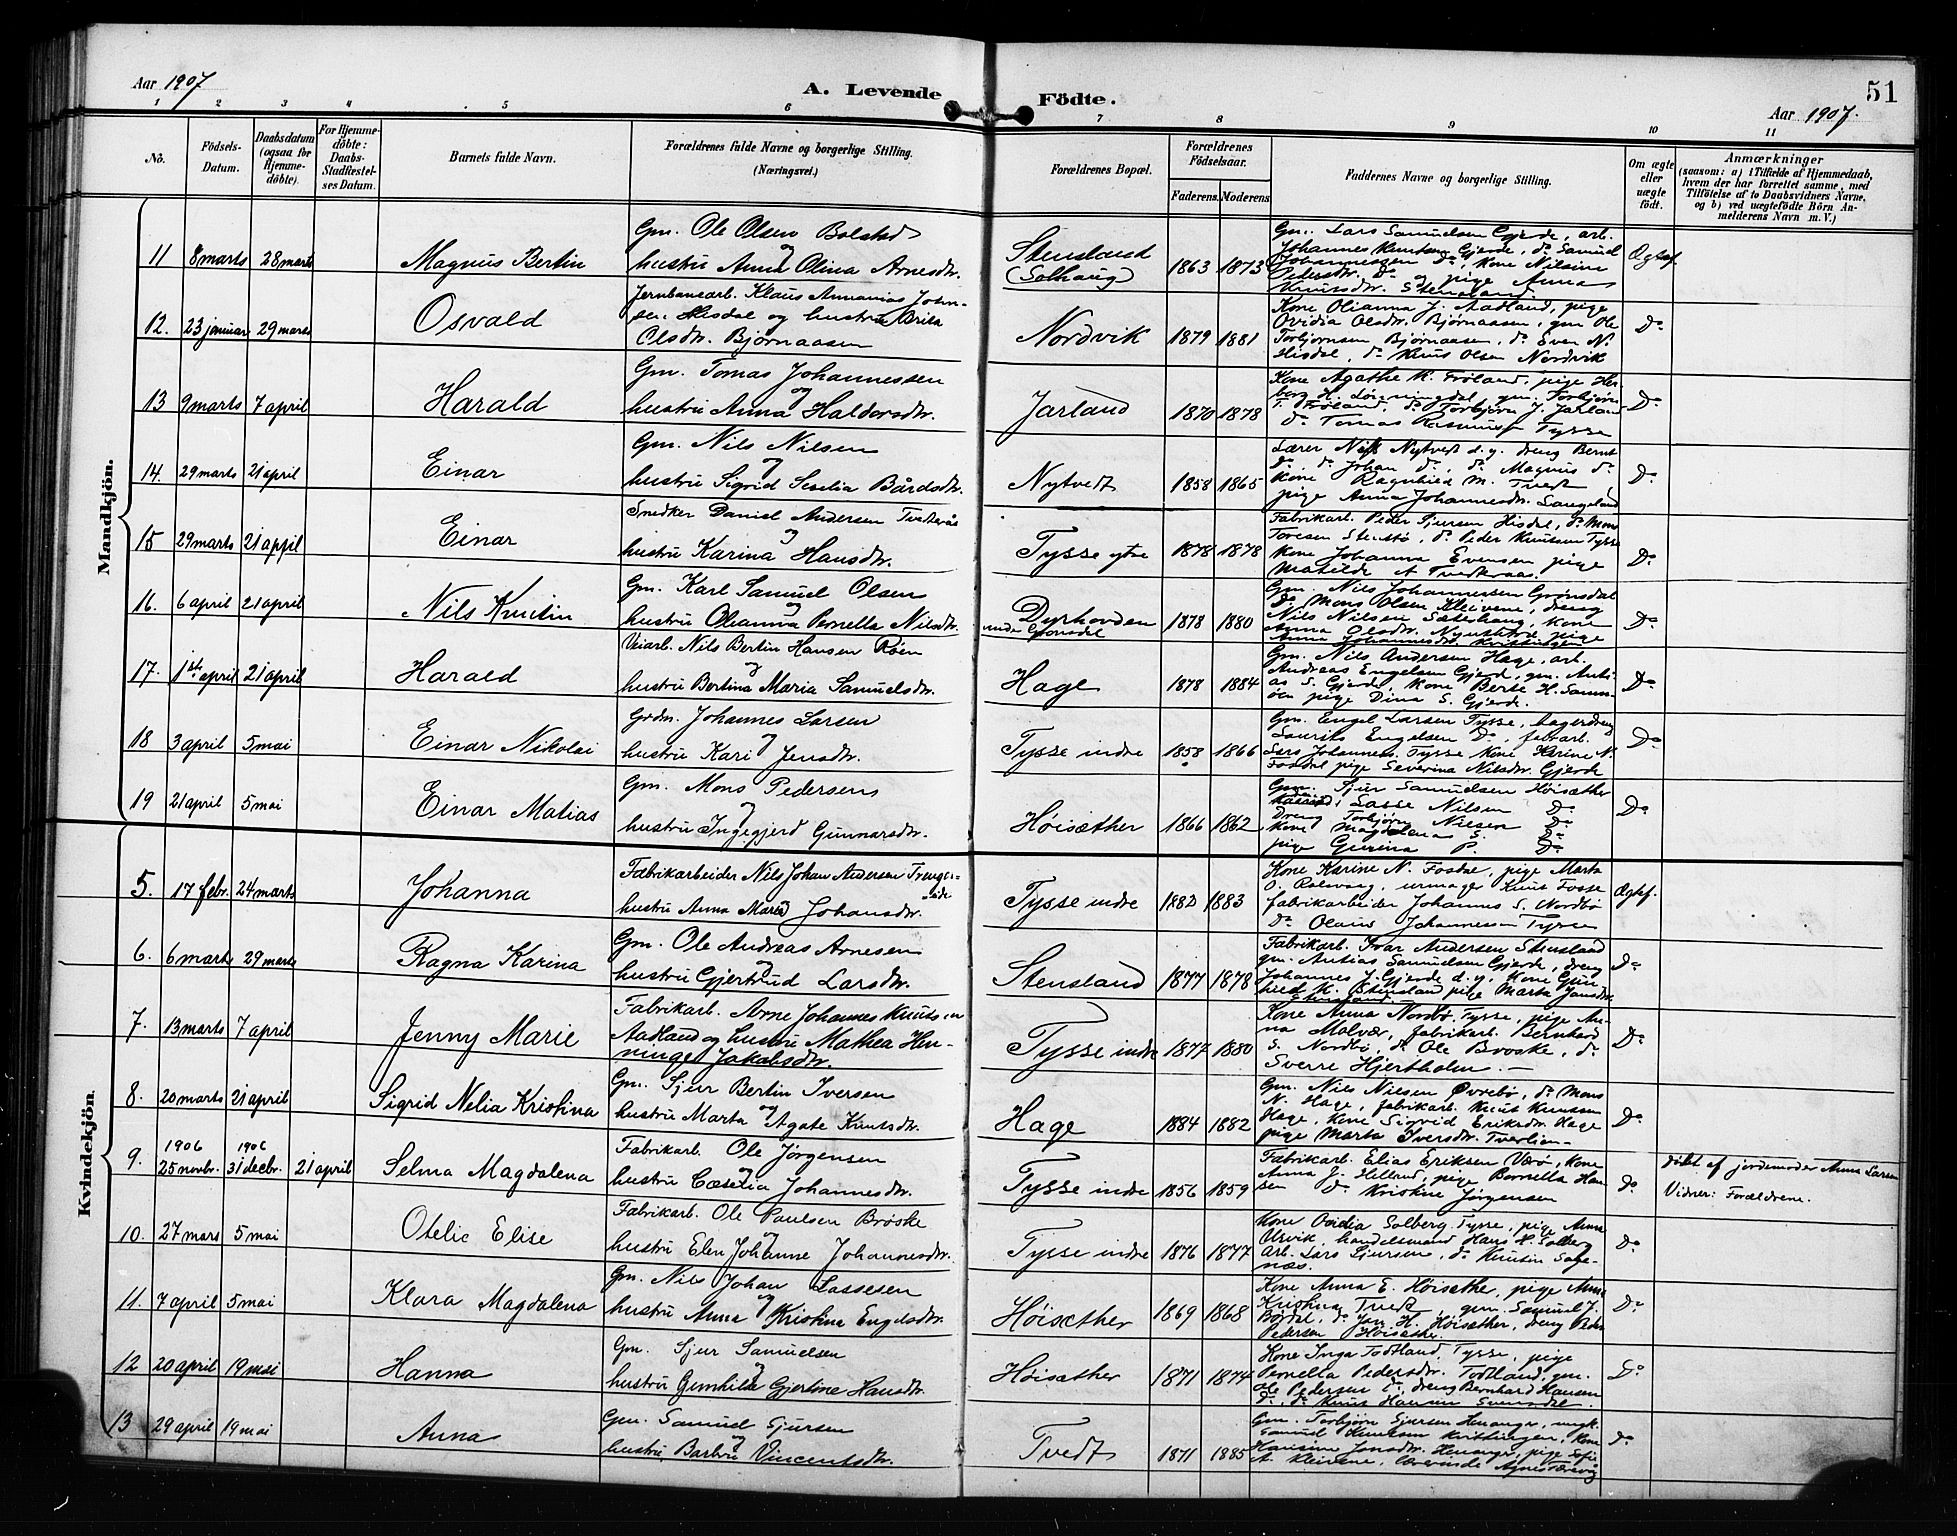 Aar 1907 A. Levende Födte. Aar 1907. 51
1 2 3 4 5 6 7 8 9 10 11
No. Födsels-Datum. Daabsdatum (ogsaa for Hjemmedöbte). For Hjemmedöbte: Daabs-Stadfæstelses Datum. Barnets fulde Navn. Forældrenes fulde Navne og borgerlige Stilling. (Næringsvei.) Forældrenes Bopæl. Forældrenes Födselsaar. Faderens. Moderens. Faddernes Navne og borgerlige Stilling. Om ægte eller uægte födt. Anmærkninger (saasom: a) i Tilfælde af Hjemmedaab, hvem der har forrettet samme, med Tilföielse af to Daabsvidners Navne, og b) ved uægtefödte Börn Anmelderens Navn m. V.)
Mandkjön.
11 8 marts 28 marts Magnus Bertin Gm. Ole Olsen Bolstad og hustru Anna Olina Arnesdtr. Stensland (Solhaug) 1863 1873 Gm. Lars Samuelsen Gjerde, arb.
Johannes Knutsen Gjerde, do Samuel
Johannessen Do, Kone Nilsine
Pedersdtr. Do og pige Anna
Knutsdtr. Stensland Ægtef.
12. 23 januar 29 marts Osvald Jernbanearb. Klaus Annanias Johnsen Hisdal og hustru Brita Olsdtr. Bjørnaasen Nordvik 1879 1881 Kone Olianna J. Aadland, pige
Ovidia Olsdtr. Bjørnaasen, gm Ole
Torbjørnsen Bjørnaasen, do Sven N.
Hisdal, do Knus Olsen Nordvik Do
13 9 marts 7 april Harald Gm. Tomas Johannessen og hustru Anna Haldorsdtr. Jarland 1870 1878 Kone Agathe K. Frøland, pige Herborg H. Lønningdal, gm. Torbjørn
T. Frøland, do Torbjørn J. Jarland
do Tomas Rasmusen Tysse Do
14. 29 marts 21 april Einar Gm. Nils Nilsen og hustru Sigrid Seselia Bårdsdtr. Nytvedt 1858 1865 Lærer Nils Nytvedt d.y. dreng Bernt
do, do Johan do, do Magnus do
Kone Ragnhild M. Tvedt
pige Anna Johannesdtr. Langeland Do
15 29 marts 21 april Einar Snedker Daniel Andersen Tvedterås og hustru Karina Hansdtr. Tysse ytre 1878 1878 Fabrikarb. Peder Sjursen Hisdal, do Mons
Toresen Stenstø, do Peder Knutsen Tysse
Kone Johanna Evensen pige
Matilde A Tvedteraas. Do
16. 6 april 21 april Nils Knutin Gm. Karl Samuel Olsen og hustru Olianna Pernella Nilsdtr. Dyrhovden under Grønsdal 1878 1880 Gm. Nils Johannessen Grønsdal
Do Mons Olsen Kleivene, dreng
Nils Nilsen Sætehaug, Kone
Anna Olsdtr. pige
Anna Johannesdtr. Kvittingen Do
17. 1ste april 21 april Harald Veiarb. Nils Bertin Hansen Røen og hustru Bertina Maria Samuelsdtr. Hage 1878 1884 Gm. Nils Andersen Hage, arb.
Andreas Engelsen Gjerd, gm. Antias S. Gjerde, Kone Berte H. Samnøen pige Dina S. Gjerde. Do
18 3 april 5 mai Einar Nikolai Grdm. Johannes Larsen og hustru Kari Jensdtr. Tysse indre 1858 1866 Gm. Engel Larsen Tysse, bagerdreng
Laurits Engelsen Do, fabarb.
Lars Johannes. Tysse Kone Karine N.
Fosdal pige Severina Nilsdtr. Gjerde Do
19 21 april 5 mai Einar Matias Gm. Mons Pedersens og hustru Ingegjerd Gunnarsdtr. Høisæther 1866 1862 Gm. Sjur Samuelsen Høisæther
Lasse Nilsen Do
Dreng Torbjørn Nilsen Do
Kone Magdelena S. Do
pige Gurina P. Do Do
Kvindekjön.
5. 17 febr. 24 marts Johanna Fabrikarbeider Nils Johan Andersen Trengereide hustru Anna Maria Johansdtr. Tysse indre 1882 1883 Kone Karine N. Fosdal, pige Marta
O. Rolsvaag, urmager Knut Fosse
fabrikarbeider Johannes S. Nordbø
Do Olaus Johannessen Tysse Ægtef.
6. 6 marts 29 marts Ragna Karina Gm. Ole Andreas Arnesen og hustru Gjertrud Larsdtr. Stensland 1877 1878 Fabrikarb. Ivar Andersen Stensland
gm. Antias Samuelsen Gjerde, dreng
Johannes J. Gjerde d.y. Kone Gunhild K. Stensland pige Marta Jansdtr
Stensland Do
7. 13 marts 7 april Jenny Marie Fabrikarb. Arne Johannes Knutsen Aadland og hustru Mathea Henninge Jakobsdtr. Tysse indre 1877 1880 Kone Anna Nordbø Tysse, pige Anna Molvær, fabrikarb. Bernhard
S. Nordbø, do Ole Broske, do
Sverre Hjertholm. Do
8. 20 marts 21 april Sigrid Nelia Kristina Gm. Sjur Bertin Iversen og hustru Marta Agate Knutsdtr. Hage 1884 1882 Gm. Nils Nilsen Øvrebø, do Mons
N. Hage, fabrikarb. Knut Knutsen
Hage, Kone Sigrid Eriksdtr. Hage
pige Marta Iversdtr. Tverlien Do
9. 1906 25 novbr. 1906 31 decbr. 21 april Selma Magdalena Fabrikarb. Ole Jørgensen og hustru Cæselia Johannesdtr. Tysse indre 1856 1859 Fabrikarb. Elias Eriksen Værø, Kone
Anna J. Helland, pige Pernella Hansen do Kristine Jørgensen do døbt af jordemoder Anna Larsen
Vidner: Forældrene.
10. 27 mars 5 mai Otelie Elise Fabrikarb. Ole Paulsen Brøske og hustru Elen Johanne Johannesdtr. Tysse indre 1876 1877 Kone Ovidia Solberg Tysse, pige Anna
Ulsvik, handelsmand Hans H. Solberg
arb. Lars Sjursen, do Knutsin Do
11. 7 april 5 mai Klara Magdalena Gm. Nils Johan Lassesen og hustru Anna Kristina Engelsdtr. Høisæther 1869 1868 Kone Anna E. Høisæther, pige Anna
Kristina Tvedt, gm. Samuel J.
Børdal, do Jan H. Høisæther, dreng Peder
Pedersen Høisæther. Do
12 20 april 19 mai Hanna Gm. Sjur Samuelsen og hustru Gunhilda Gjertine Hansdtr. Høisæther 1871 1874 Kone Inga Todtland, Tysse, pige
Pernella Pedersdtr. Todtland, gm.
Ole Pedersen do, dreng Bernhard Hansen
do, do Knut Hansen Do
13 29 april 19 mai Anna Gm. Samuel Sjursen og hustru Barbru Vincentsdtr. Tvedt 1871 1885 Gm. Torbjørn Sjursen Henanger, ungk.
Samuel Knutsen Kvittingen, Kone
Hansine Jonsdtr. Henanger, pige Sofie
A. Kleivene, lærerinde Agnes Do